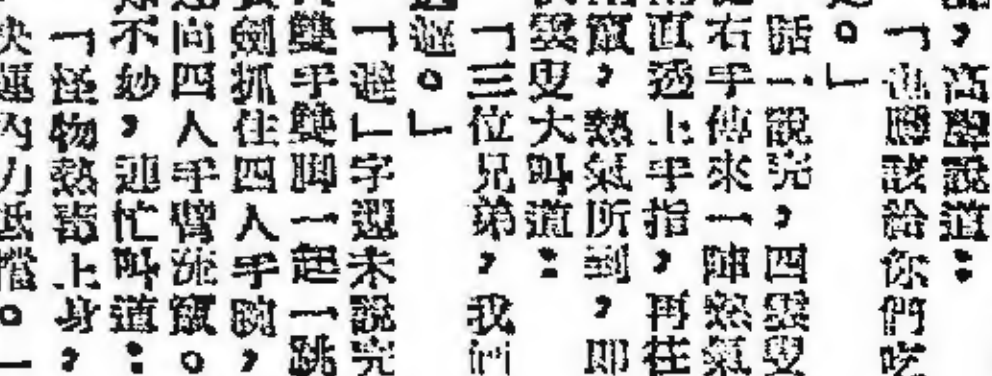 ，高聲說道：
「也應該給你們吃
。」
話一說完，四雲叟
右手傳來一陣熱氣
直透上手指，再往
竄，熱氣所到，即
雲叟大叫道：
「三位兄弟，我們
避。」
「避」字還未說完
雙手雙腳一起一跳
劍抓住四人手腕，
向四人手臂流竄。
不妙，連忙叫道：
「怪物熱毒上身，
快運內力抵擋。